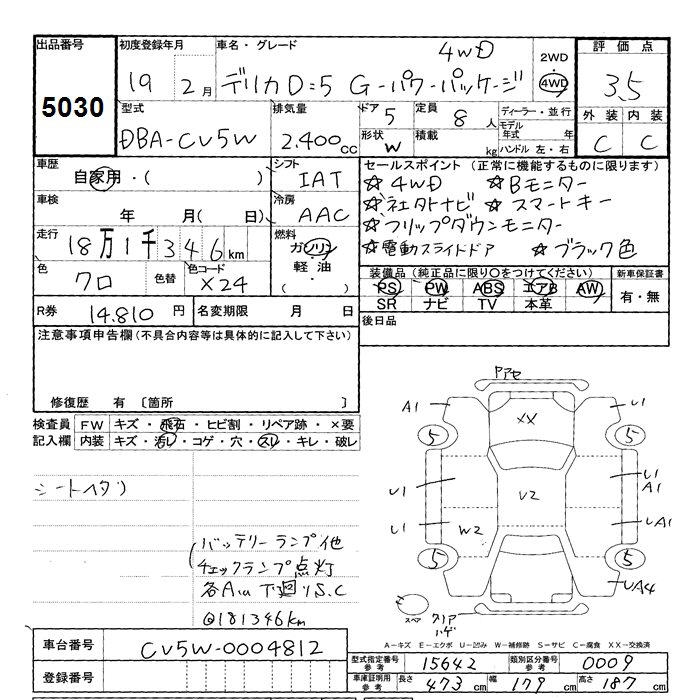 出品番号 初度登録年月 車名・グレード 評価点
5030 19年2月 デリカD:5 G-パワーパッケージ 4WD 2WD 4WD 3.5
型式 排気量 ドア 定員 ディーラー・並行 外装 内装
DBA-CV5W 2.400cc 5 8人 モデル年式 年 C C
形状 W 積載 kg ハンドル 左・右
車歴 シフト セールスポイント (正常に機能するものに限ります)
自家用・( ) IAT ☆4WD ☆Bモニター
車検 冷房 ☆社外ナビ ☆スマートキー
年 月( 日) AAC ☆フリップダウンモニター
走行 燃料 ☆電動スライドドア ☆ブラック色
18万1千346km ガソリン
軽油・
( )
色 色替 色コード 装備品 (純正品に限り〇をつけてください) 新車保証書
クロ X24 PS PW ABS エアB AW 有・無
SR ナビ TV 本革
R券 14.810円 名変期限 月 日 後日品
注意事項申告欄(不具合内容等は具体的に記入して下さい)
修復歴 有 〔箇所 〕
検査員 FW キズ・飛石・ヒビ割・リペア跡・×要
記入欄 内装 キズ・汚レ・コゲ・穴・スレ・キレ・破レ
シートヘタリ
バッテリーランプ他
チェックランプ点灯
@181346km
Fアセ
A1 XX U1
5 5
U1 U1
A1
V2
U1 W2 UA1
5 5
UA4
スペア クリア
ハゲ
A−キズ E−エクボ U−凹み W−補修跡 S−サビ C−腐食 XX−交換済
車台番号 CV5W-0004812
型式指定番号 参考 15642 類別区分番号 参考 0009
登録番号
車庫証明用 参考 長さ 473cm 幅 179cm 高さ 187cm